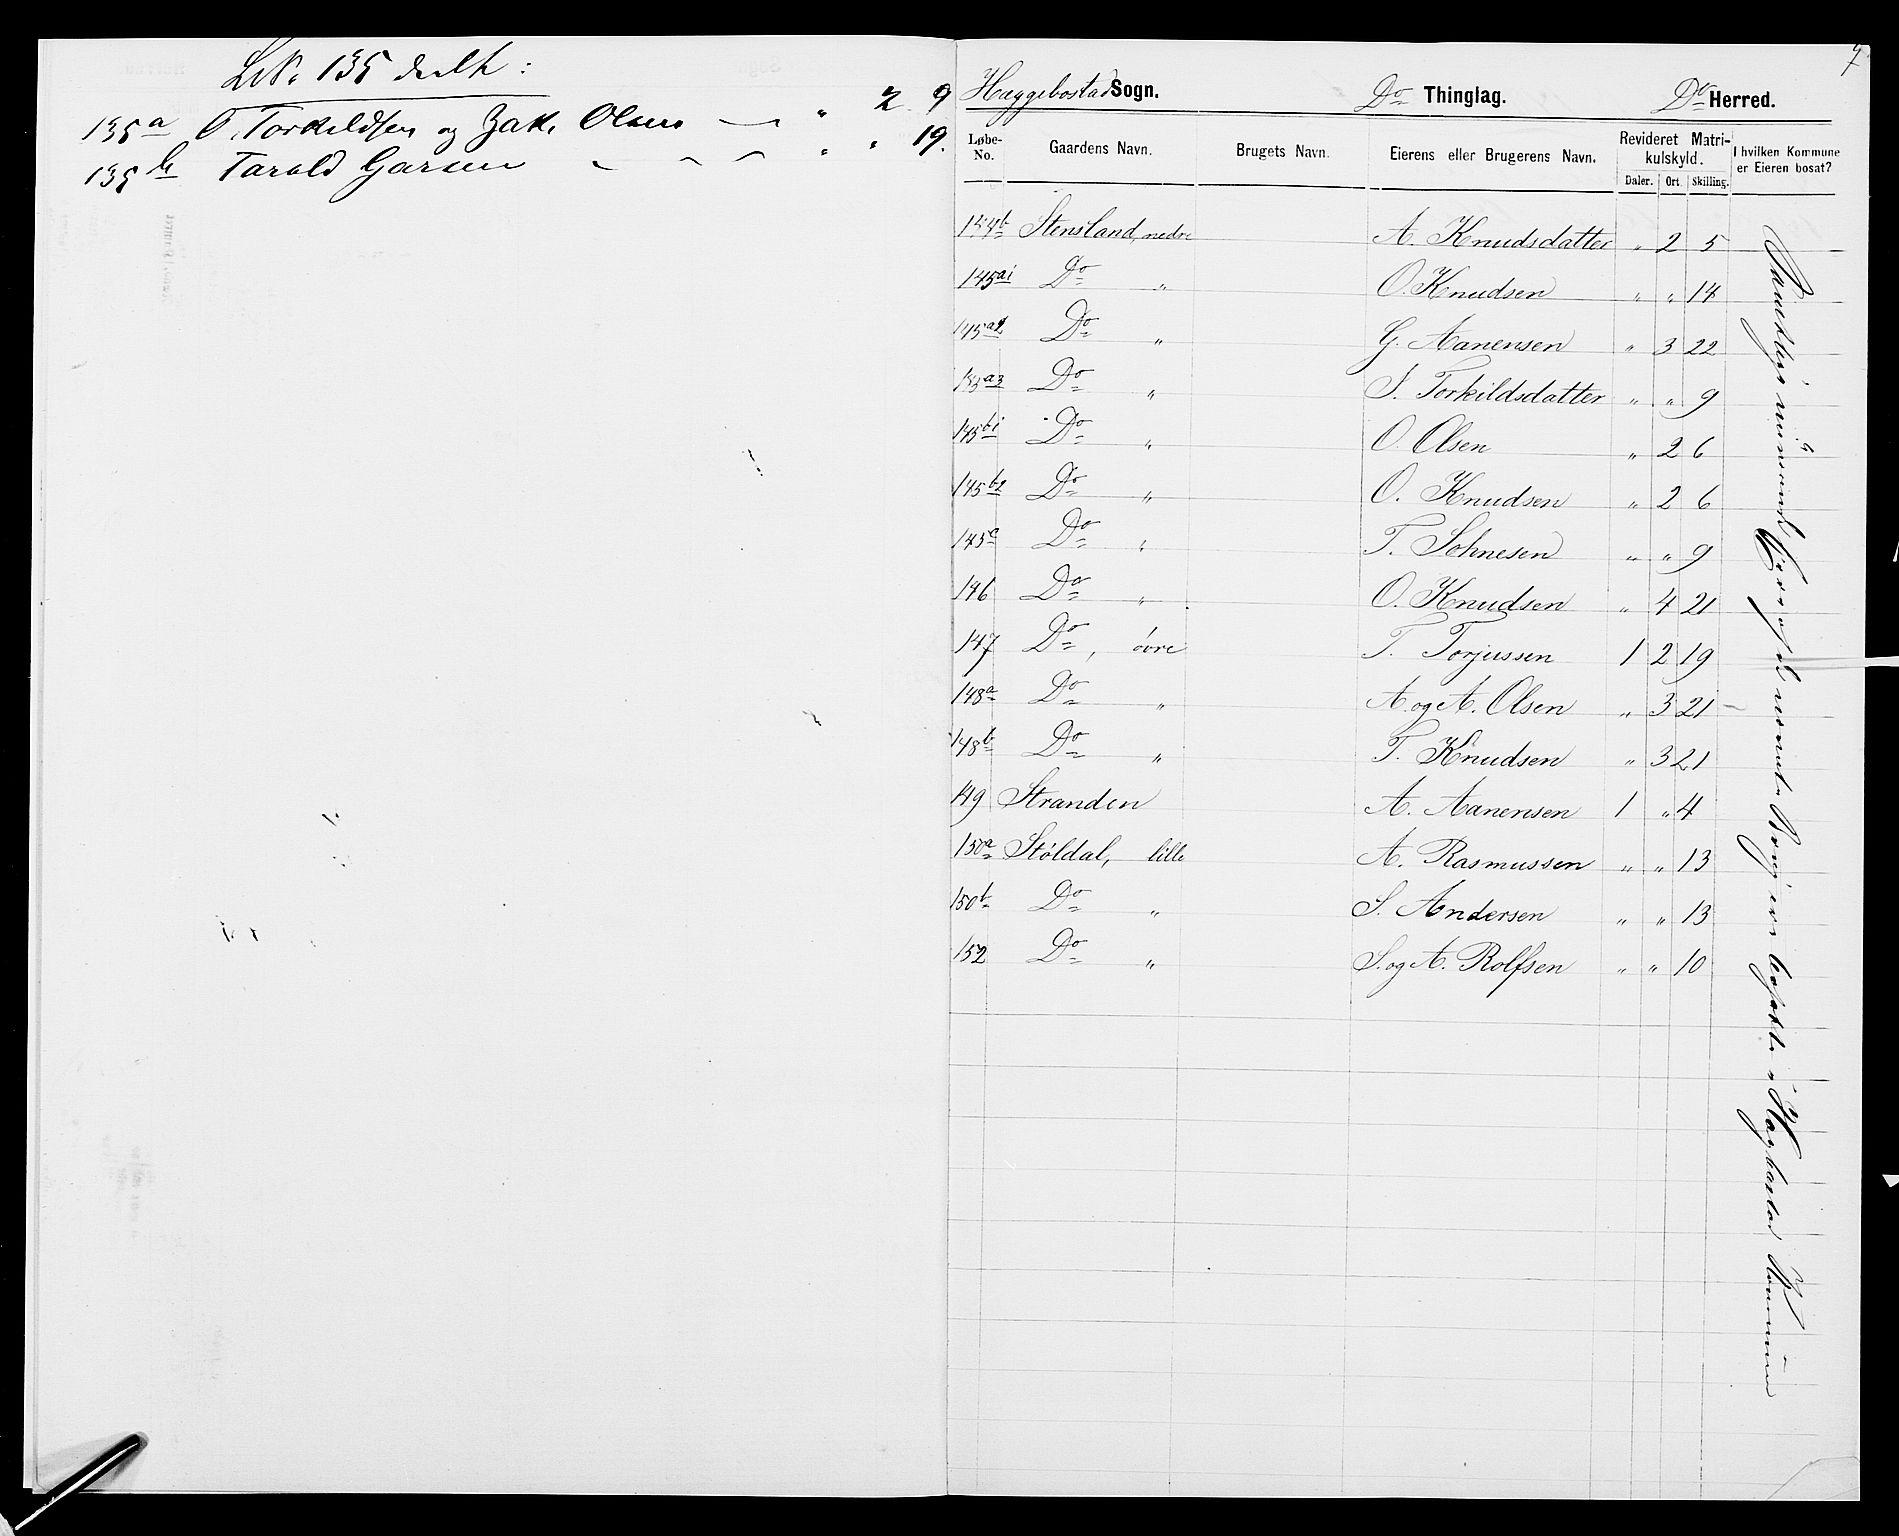 LNo 135 deelt :
135a O. Torkildsen og Zak. Olsen — „ 2 9
135b Tarald Garsen „ „ 19.
7
Hæggebostad Sogn. Do Thinglag. Do Herred.
Løbe-No. Gaardens Navn. Brugets Navn. Eierens eller Brugerens Navn. Revideret Matrikulskyld. Daler. Ort. Skilling. I hvilken Kommune er Eieren bosat?
144b Stensland, nedre A. Knudsdatter „ 2 5
145a1 Do „ O. Knudsen „ „ 14
145a2 Do „ G. Aanensen „ 3 22
145a3 Do „ S. Torkildsdatter „ „ 9
145b1 Do „ O. Olsen „ 2 6
145b2 Do „ O. Knudsen „ 2 6
145c Do „ T. Johnesen „ „ 9
146 Do „ O. Knudsen „ 4 21
147 Do, øvre T. Torjussen 1 2 19
148a Do „ A. og A. Olsen „ 3 21
148b Do „ T. Knudsen „ 3 21
149 Stranden A. Aanensen 1 „ 4
150a Støldal, lille A. Rasmussen „ „ 13
150b Do „ S. Andersen „ „ 13
152 Do „ S. og A. Rolfsen „ „ 10
Samtlige Eiere af de nævnte Brug ere bosatte i Hægbostad Kommune